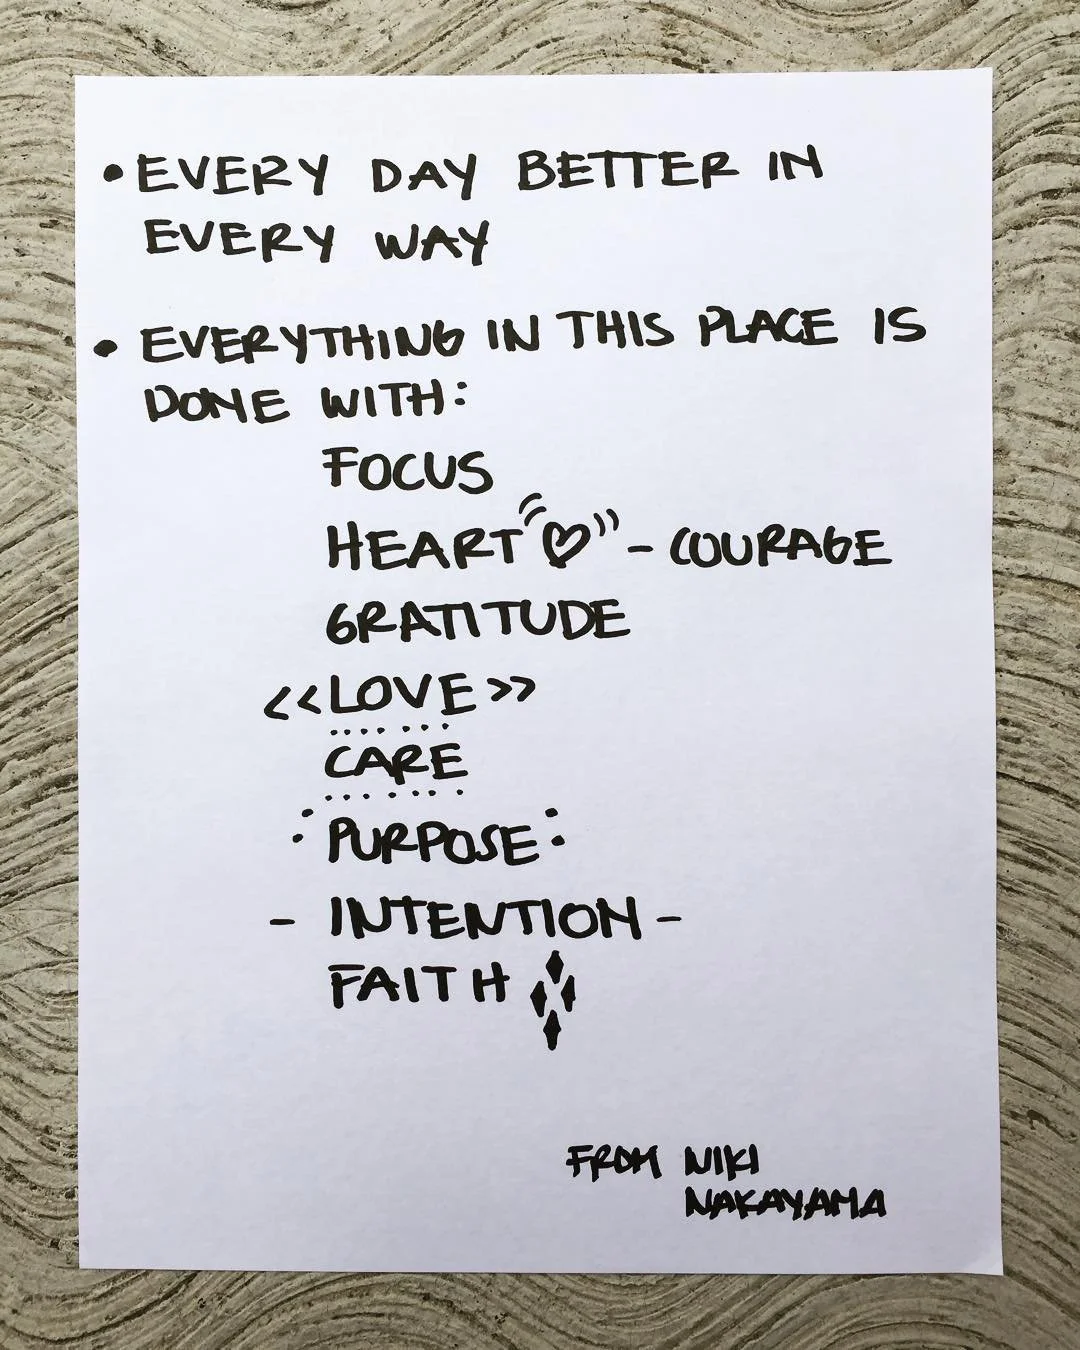 • EVERY DAY BETTER IN
EVERY WAY
• EVERYTHING IN THIS PLACE IS
DONE WITH:
FOCUS
HEART ♡ - COURAGE
GRATITUDE
<<LOVE>>
CARE
PURPOSE
- INTENTION -
FAITH
FROM NIKI
NAKAYAMA